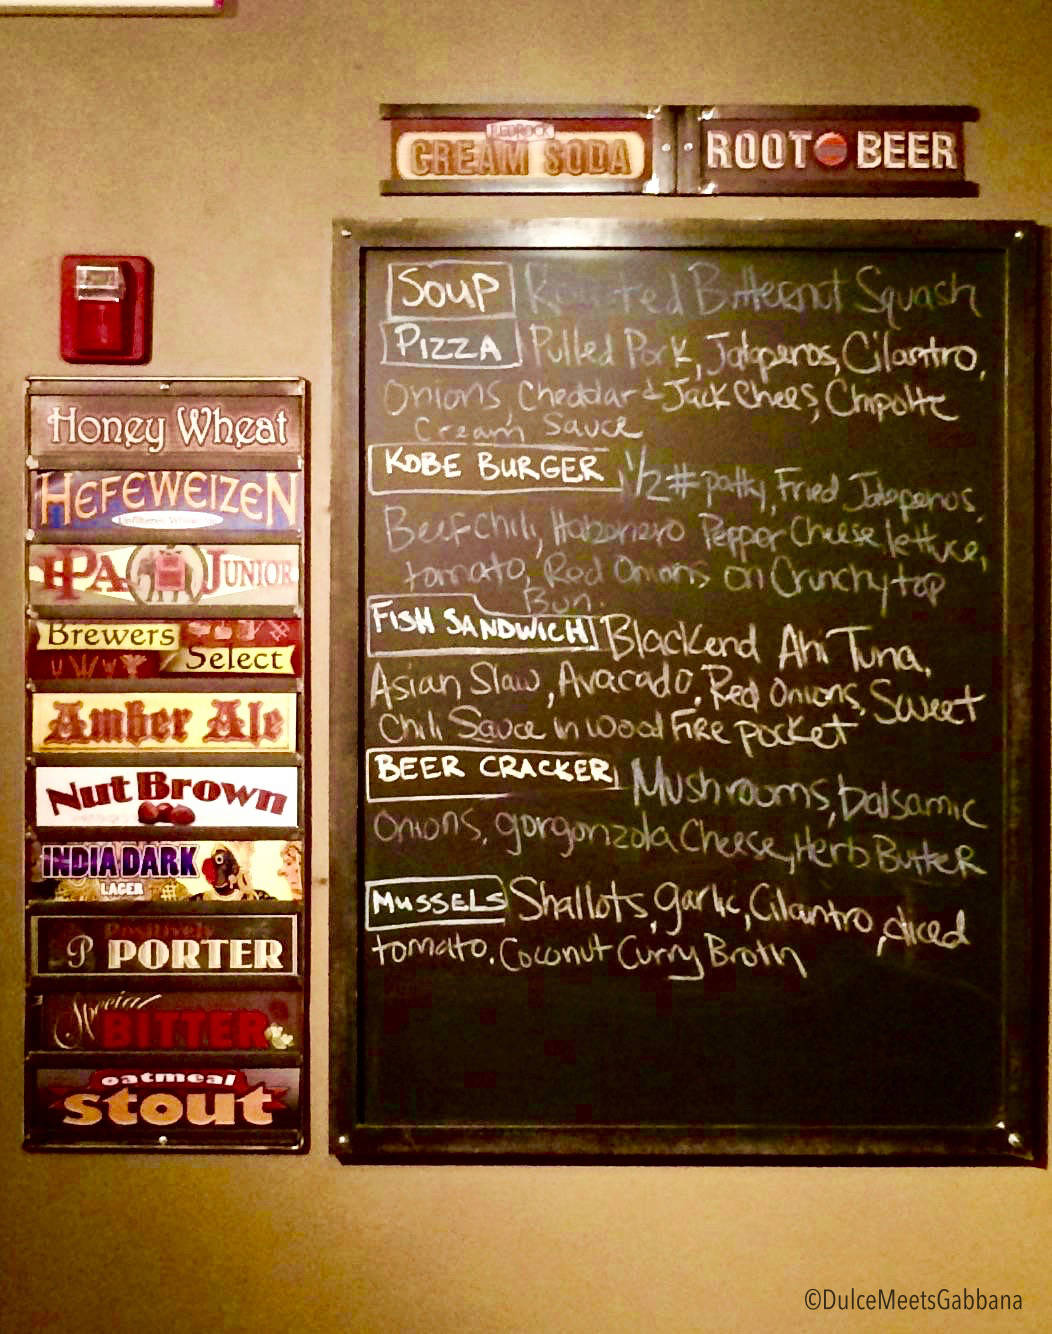 REDROCK
CREAM SODA
ROOT BEER
Honey Wheat
HEFEWEIZEN
Unfiltered Wheat
IPA JUNIOR
Brewers
Select
Amber Ale
Nut Brown
INDIA DARK
LAGER
Positively
P PORTER
Special
BITTER
oatmeal
stout
SOUP Roasted Butternut Squash
PIZZA Pulled Pork, Jalapenos, Cilantro,
Onions, Cheddar & Jack Chees, Chipolte
Cream Sauce
KOBE BURGER 1/2 # patty, Fried Jalapenos
Beef chili, Habonero Pepper Cheese, lettuce,
tomato, Red Onions on Crunchy top
Bun.
FISH SANDWICH Blackend Ahi Tuna,
Asian Slaw, Avacado, Red Onions, Sweet
Chili Sauce in wood Fire pocket
BEER CRACKER Mushrooms, balsamic
onions, gorgonzola Cheese, Herb Butter
MUSSELS Shallots, garlic, Cilantro, diced
tomato, Coconut Curry Broth
©DulceMeetsGabbana